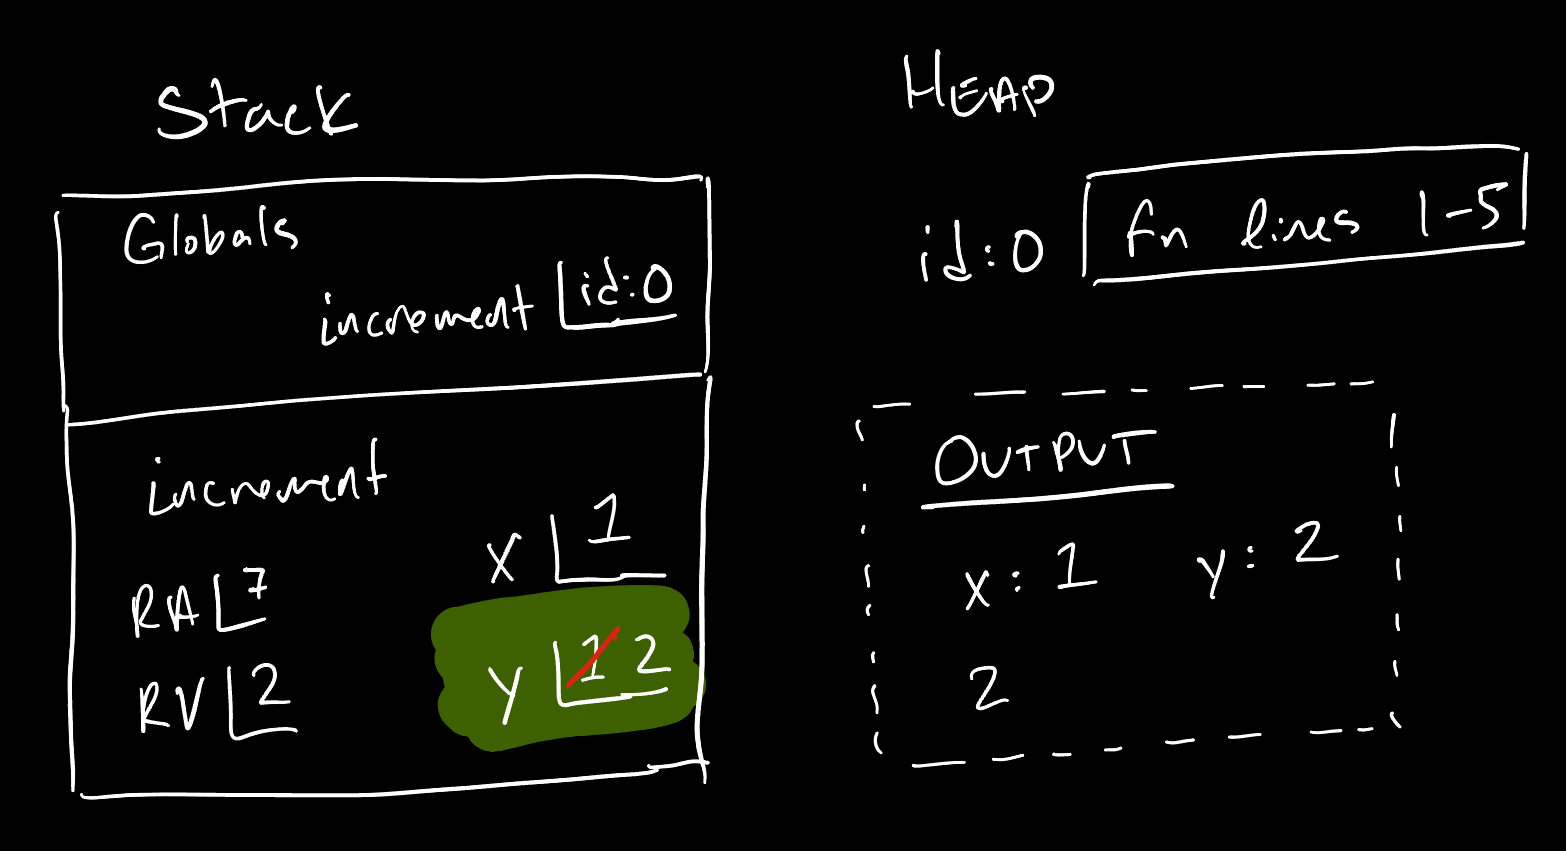 Stack
Globals
increment id:0
increment
x 1
RA 7
y 1 2
RV 2
HEAP
id:0 fn lines 1-5
OUTPUT
x: 1 y: 2
2